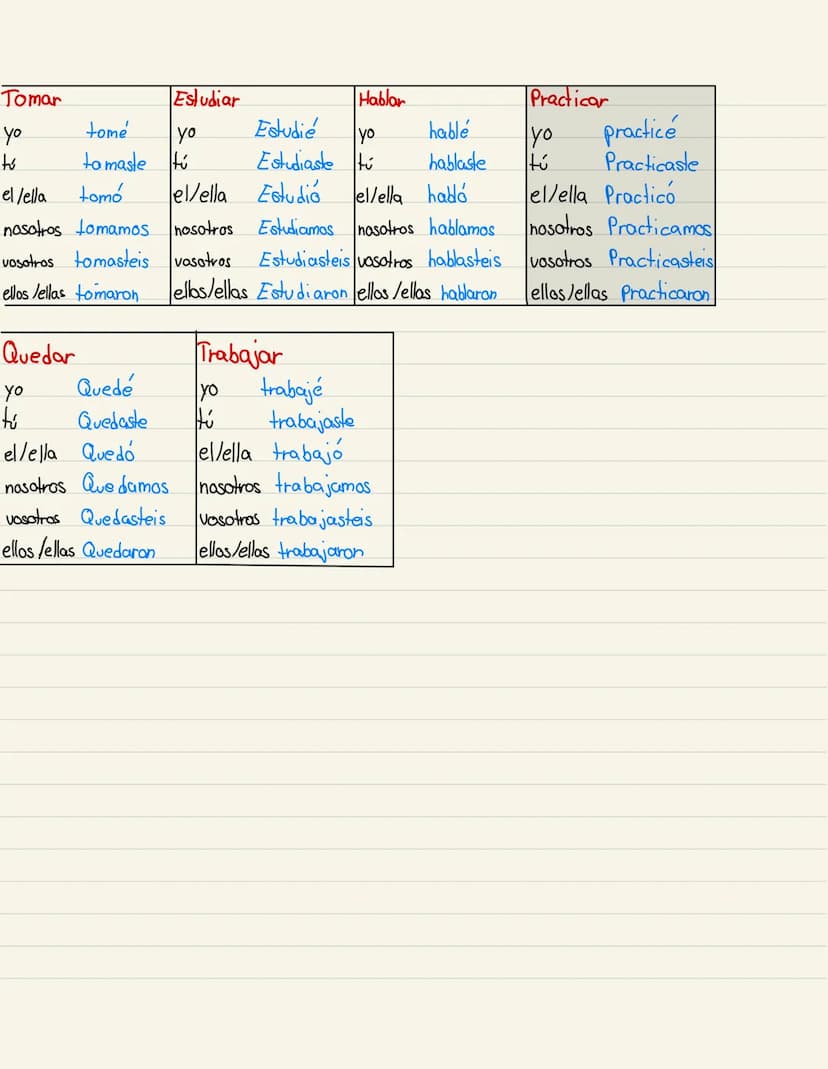 Tomar Estudiar Hablar Practicar
yo tomé yo Estudié yo hablé yo practicé
tú tomaste tú Estudiaste tú hablaste tú Practicaste
el/ella tomó el/ella Estudió el/ella habló el/ella Practicó
nosotros tomamos nosotros Estudiamos nosotros hablamos nosotros Practicamos
vosotros tomasteis vosotros Estudiasteis vosotros hablasteis vosotros Practicasteis
ellos/ellas tomaron ellos/ellas Estudiaron ellos/ellas hablaron ellos/ellas Practicaron
Quedar Trabajar
yo Quedé yo trabajé
tú Quedaste tú trabajaste
el/ella Quedó el/ella trabajó
nosotros Quedamos nosotros trabajamos
vosotros Quedasteis vosotros trabajasteis
ellos/ellas Quedaron ellos/ellas trabajaron